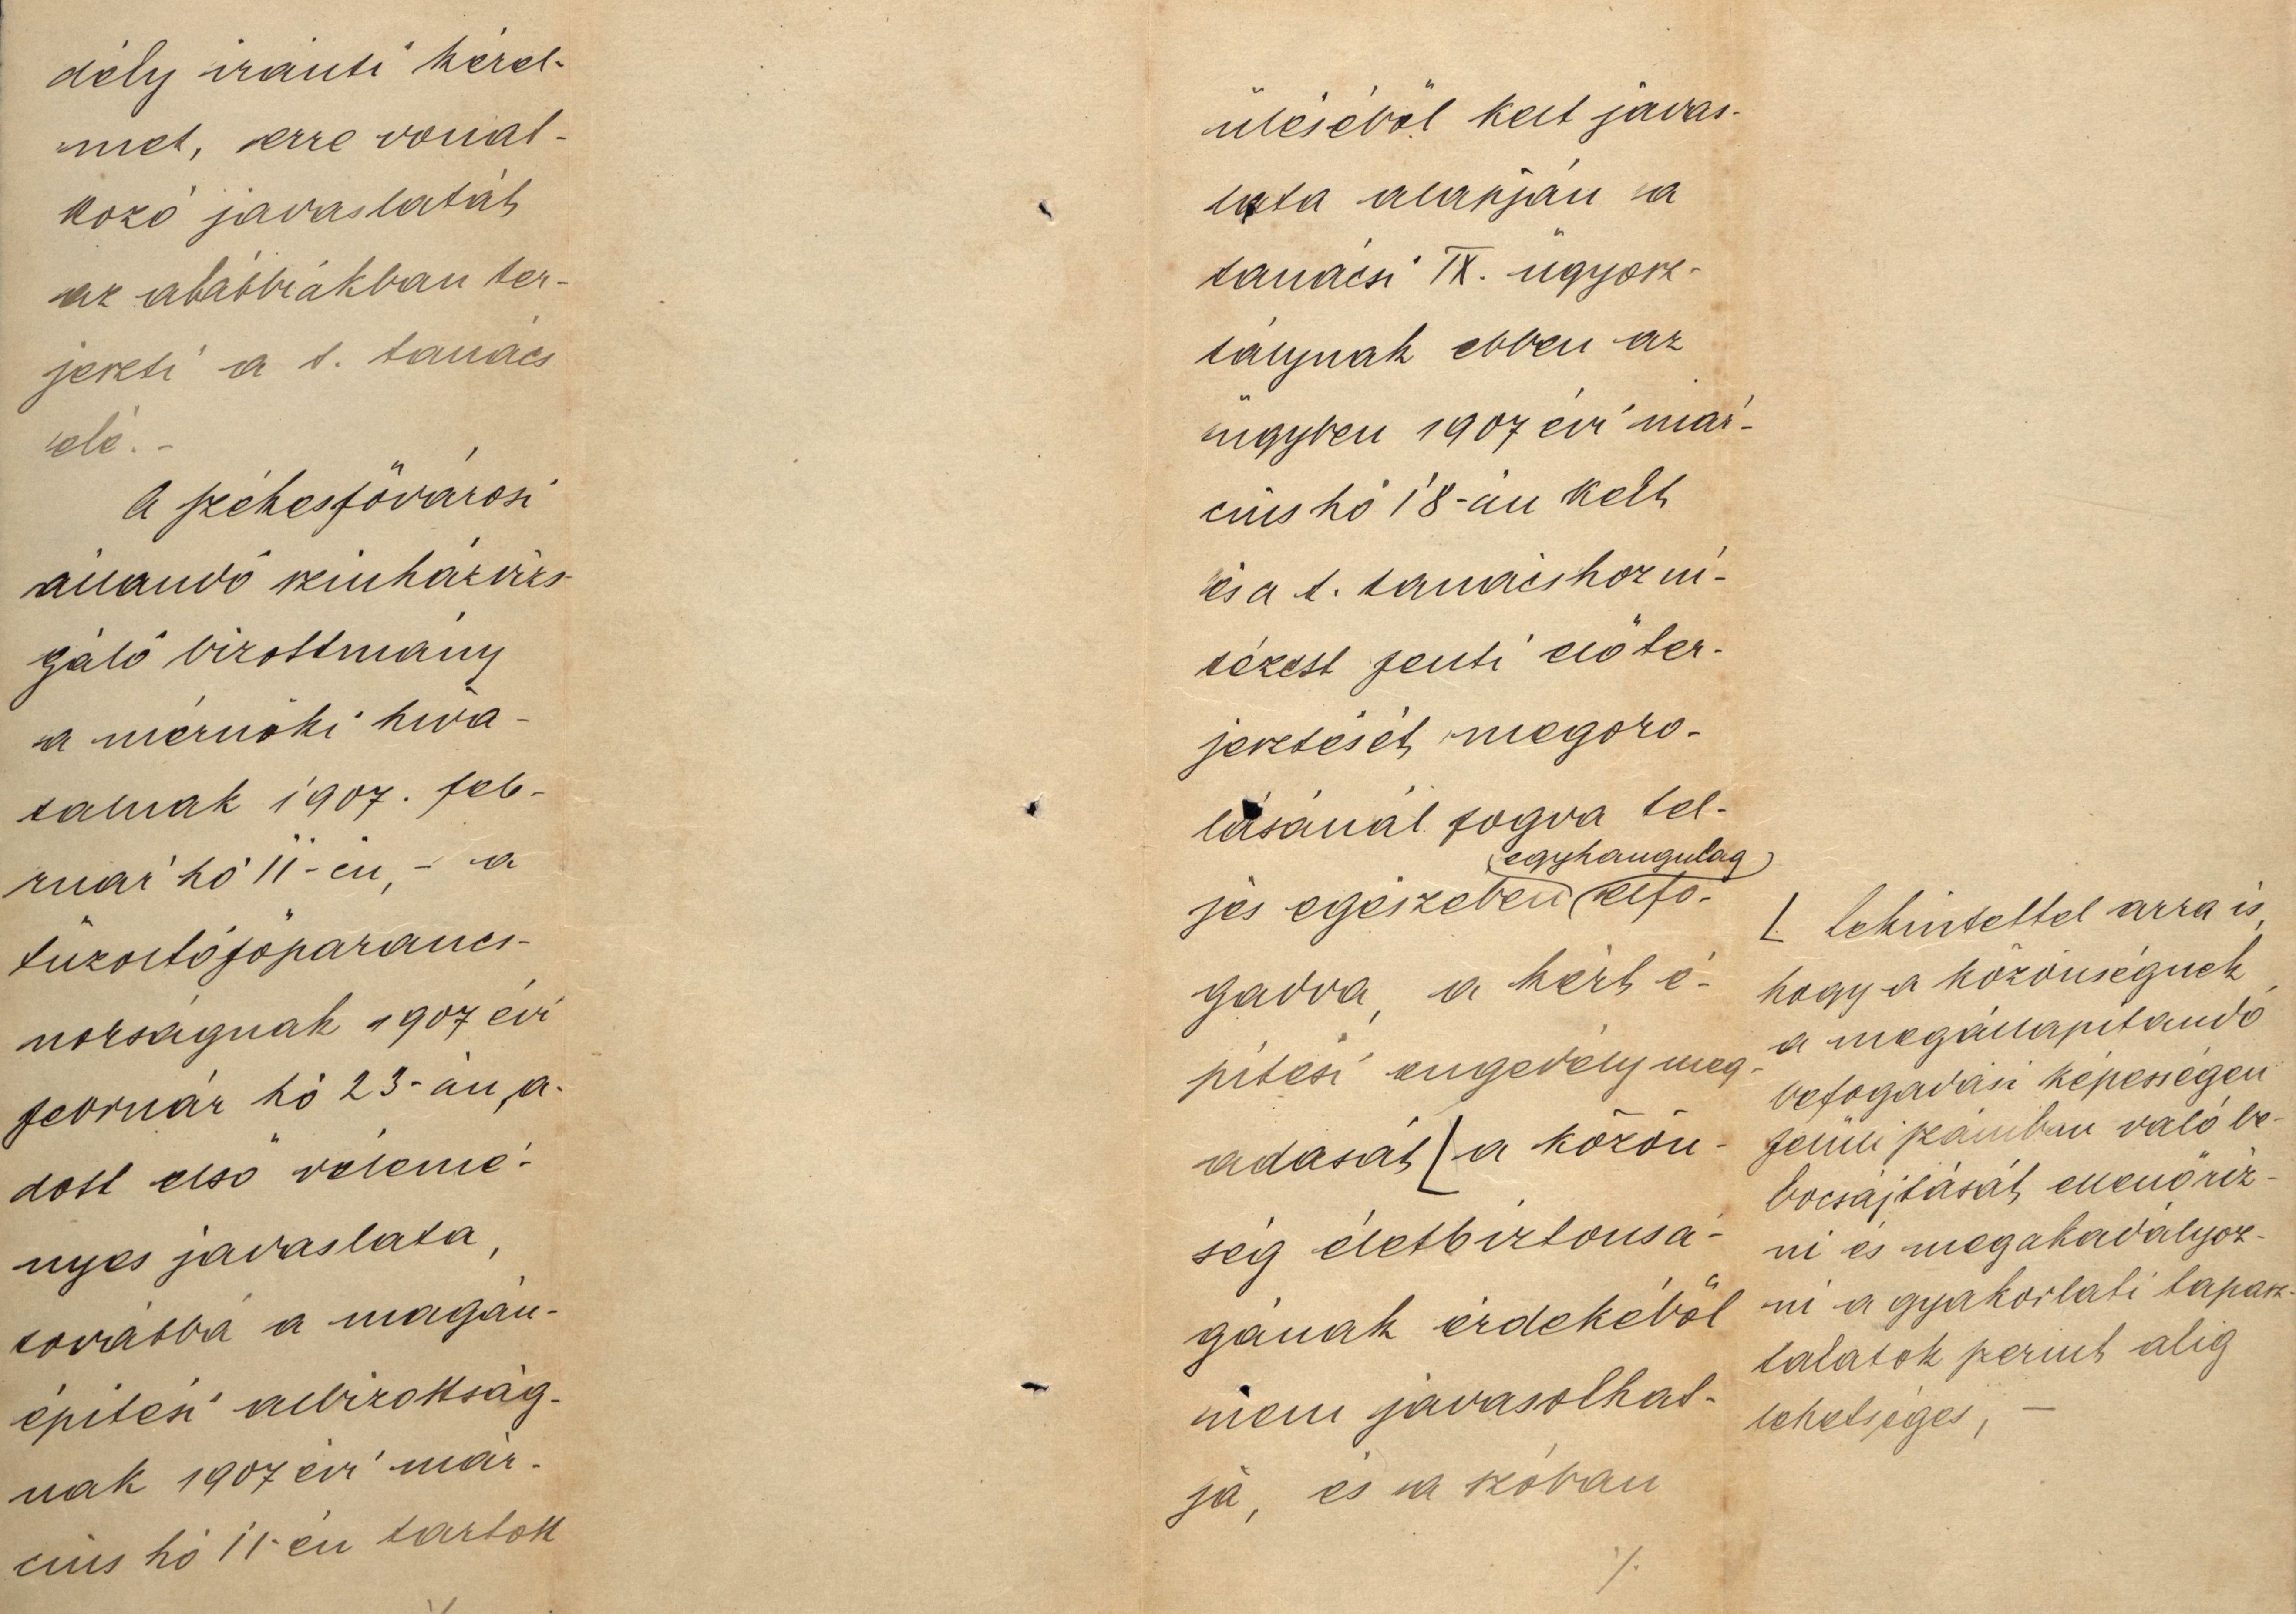 dély iránti kérel-
met, erre vonat-
kozó javaslatát
az alábbiakban ter-
jeszti a t. tanács
elé. -
A székesfővárosi
állandó szinházvizs-
gáló bizottmány
a mérnöki hiva-
talnak 1907. feb-
ruár hó 11-én, - a
tűzoltófőparancs-
nokságnak 1907 évi
február hó 23-án, a-
dott első vélemé-
nyes javaslata,
továbbá a magán-
épitési albizottság-
nak 1907 évi már-
cius hó 11-én tartott
üléséből kelt javas-
lata alapján a
tanácsi IX. ügyosz-
tálynak ebben az
ügyben 1907 évi már-
cius hó 18-án kelt
és a t. tanácshoz in-
tézett fenti előter-
jesztését, megoro-
lásánál fogva tel-
egyhangulag
jes egészében elfo-
gadva, a kért é-
pitési engedély meg-
adását [ a közön-
ség életbiztonsá-
gának érdekéből
nem javasolhat-
ja, és a szóban
./.
[ tekintettel arra is,
hogy a közönségnek,
a megállapitandó
befogadási képességen
felüli számban való be-
bocsájtását, ellenőriz-
ni és megakadályoz-
ni a gyakorlati tapasz-
talatok szerint alig
lehetséges, -